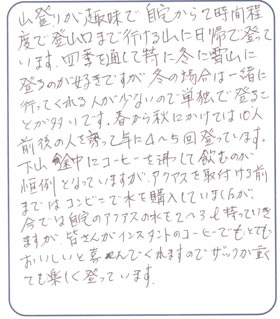 山登りが趣味で自宅から2時間程
度で登山口まで行ける山に日帰で登って
います。四季を通して特に冬に雪山に
登るのが好きですが冬の場合は一緒に
行ってくれる人が少ないので単独で登るこ
とが多いです。春から秋にかけては10人
前後の人を誘って年に4〜5回登っています。
下山途中にコーヒーを沸して飲むのが
恒例となっていますが、アクアスを取付ける前
まではコンビニで水を購入していましたが、
今では自宅のアクアスの水を2〜3ℓ持っていき
ますが、皆さんがインスタントのコーヒーでもとても
おいしいと喜んでくれますのでザックが重く
ても楽しく登っています。